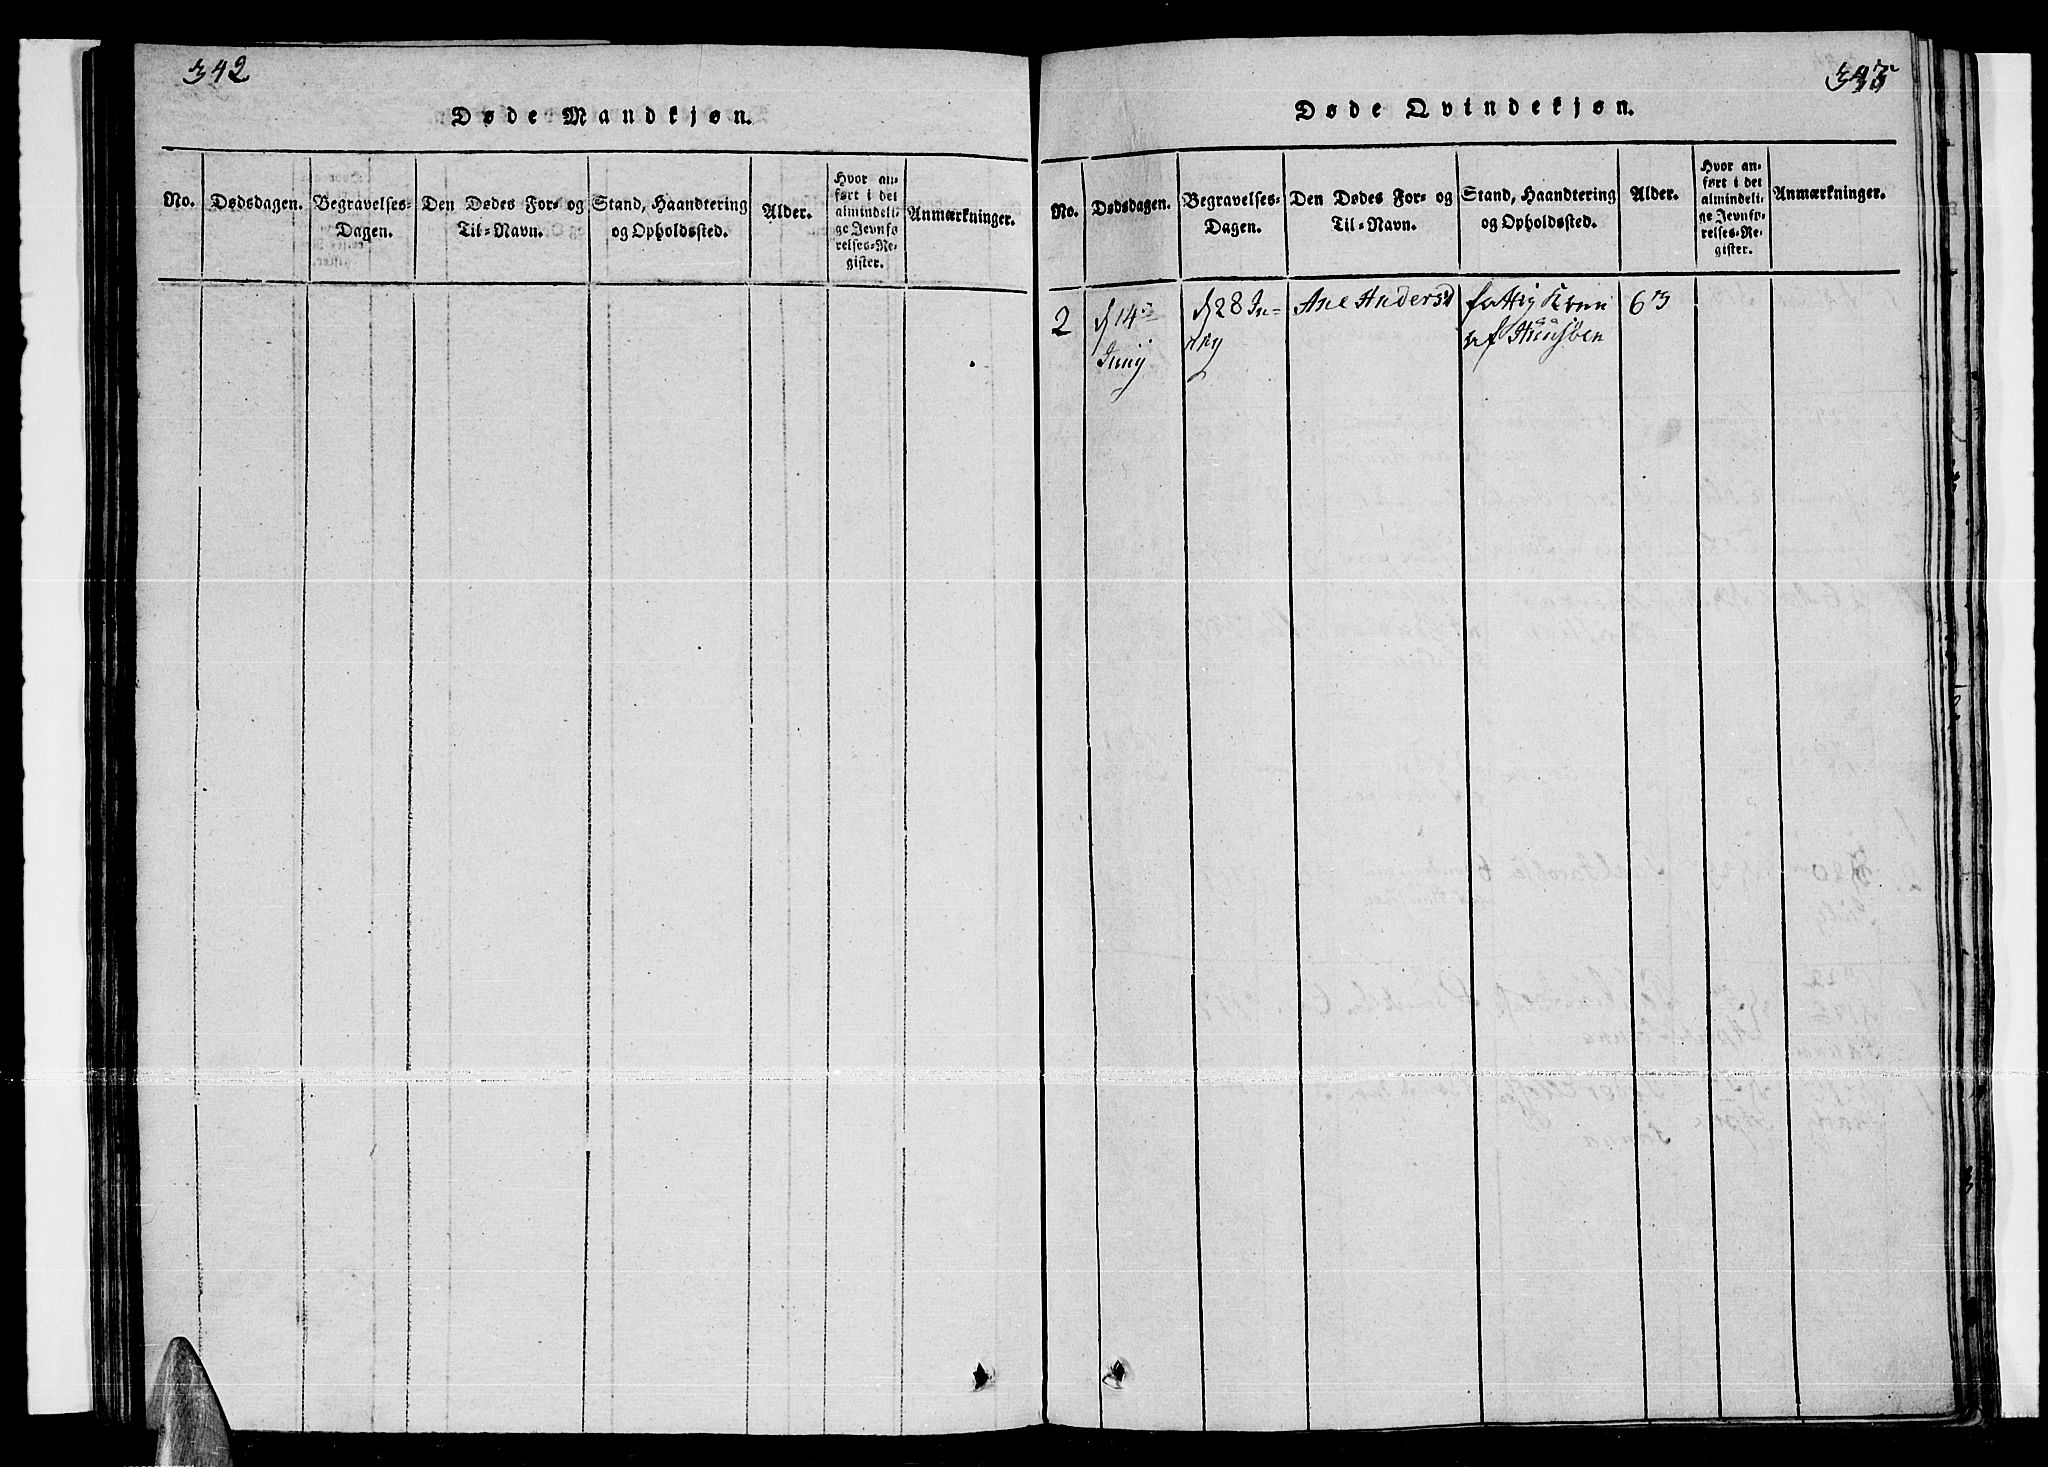 342
Døde Mandkjøn.
No.
Dødsdagen.
Begravelses-
Dagen.
Den Dødes For- og
Til-Navn.
Stand, Haandtering
og Opholdssted.
Alder.
Hvor an-
ført i det
almindeli-
ge Jevnfø-
relses-Re-
gister.
Anmærkninger.
343
Døde Qvindekjøn.
No.
Dødsdagen.
Begravelses-
Dagen.
Den Dødes For- og
Til-Navn.
Stand, Haandtering
og Opholdssted.
Alder.
Hvor an-
ført i det
almindeli-
ge Jevnfø-
relses-Re-
gister.
Anmærkninger.
2
d 14
Junij
d 28 Ju-
nij
Ane Andersd
fattig Kone
af
63